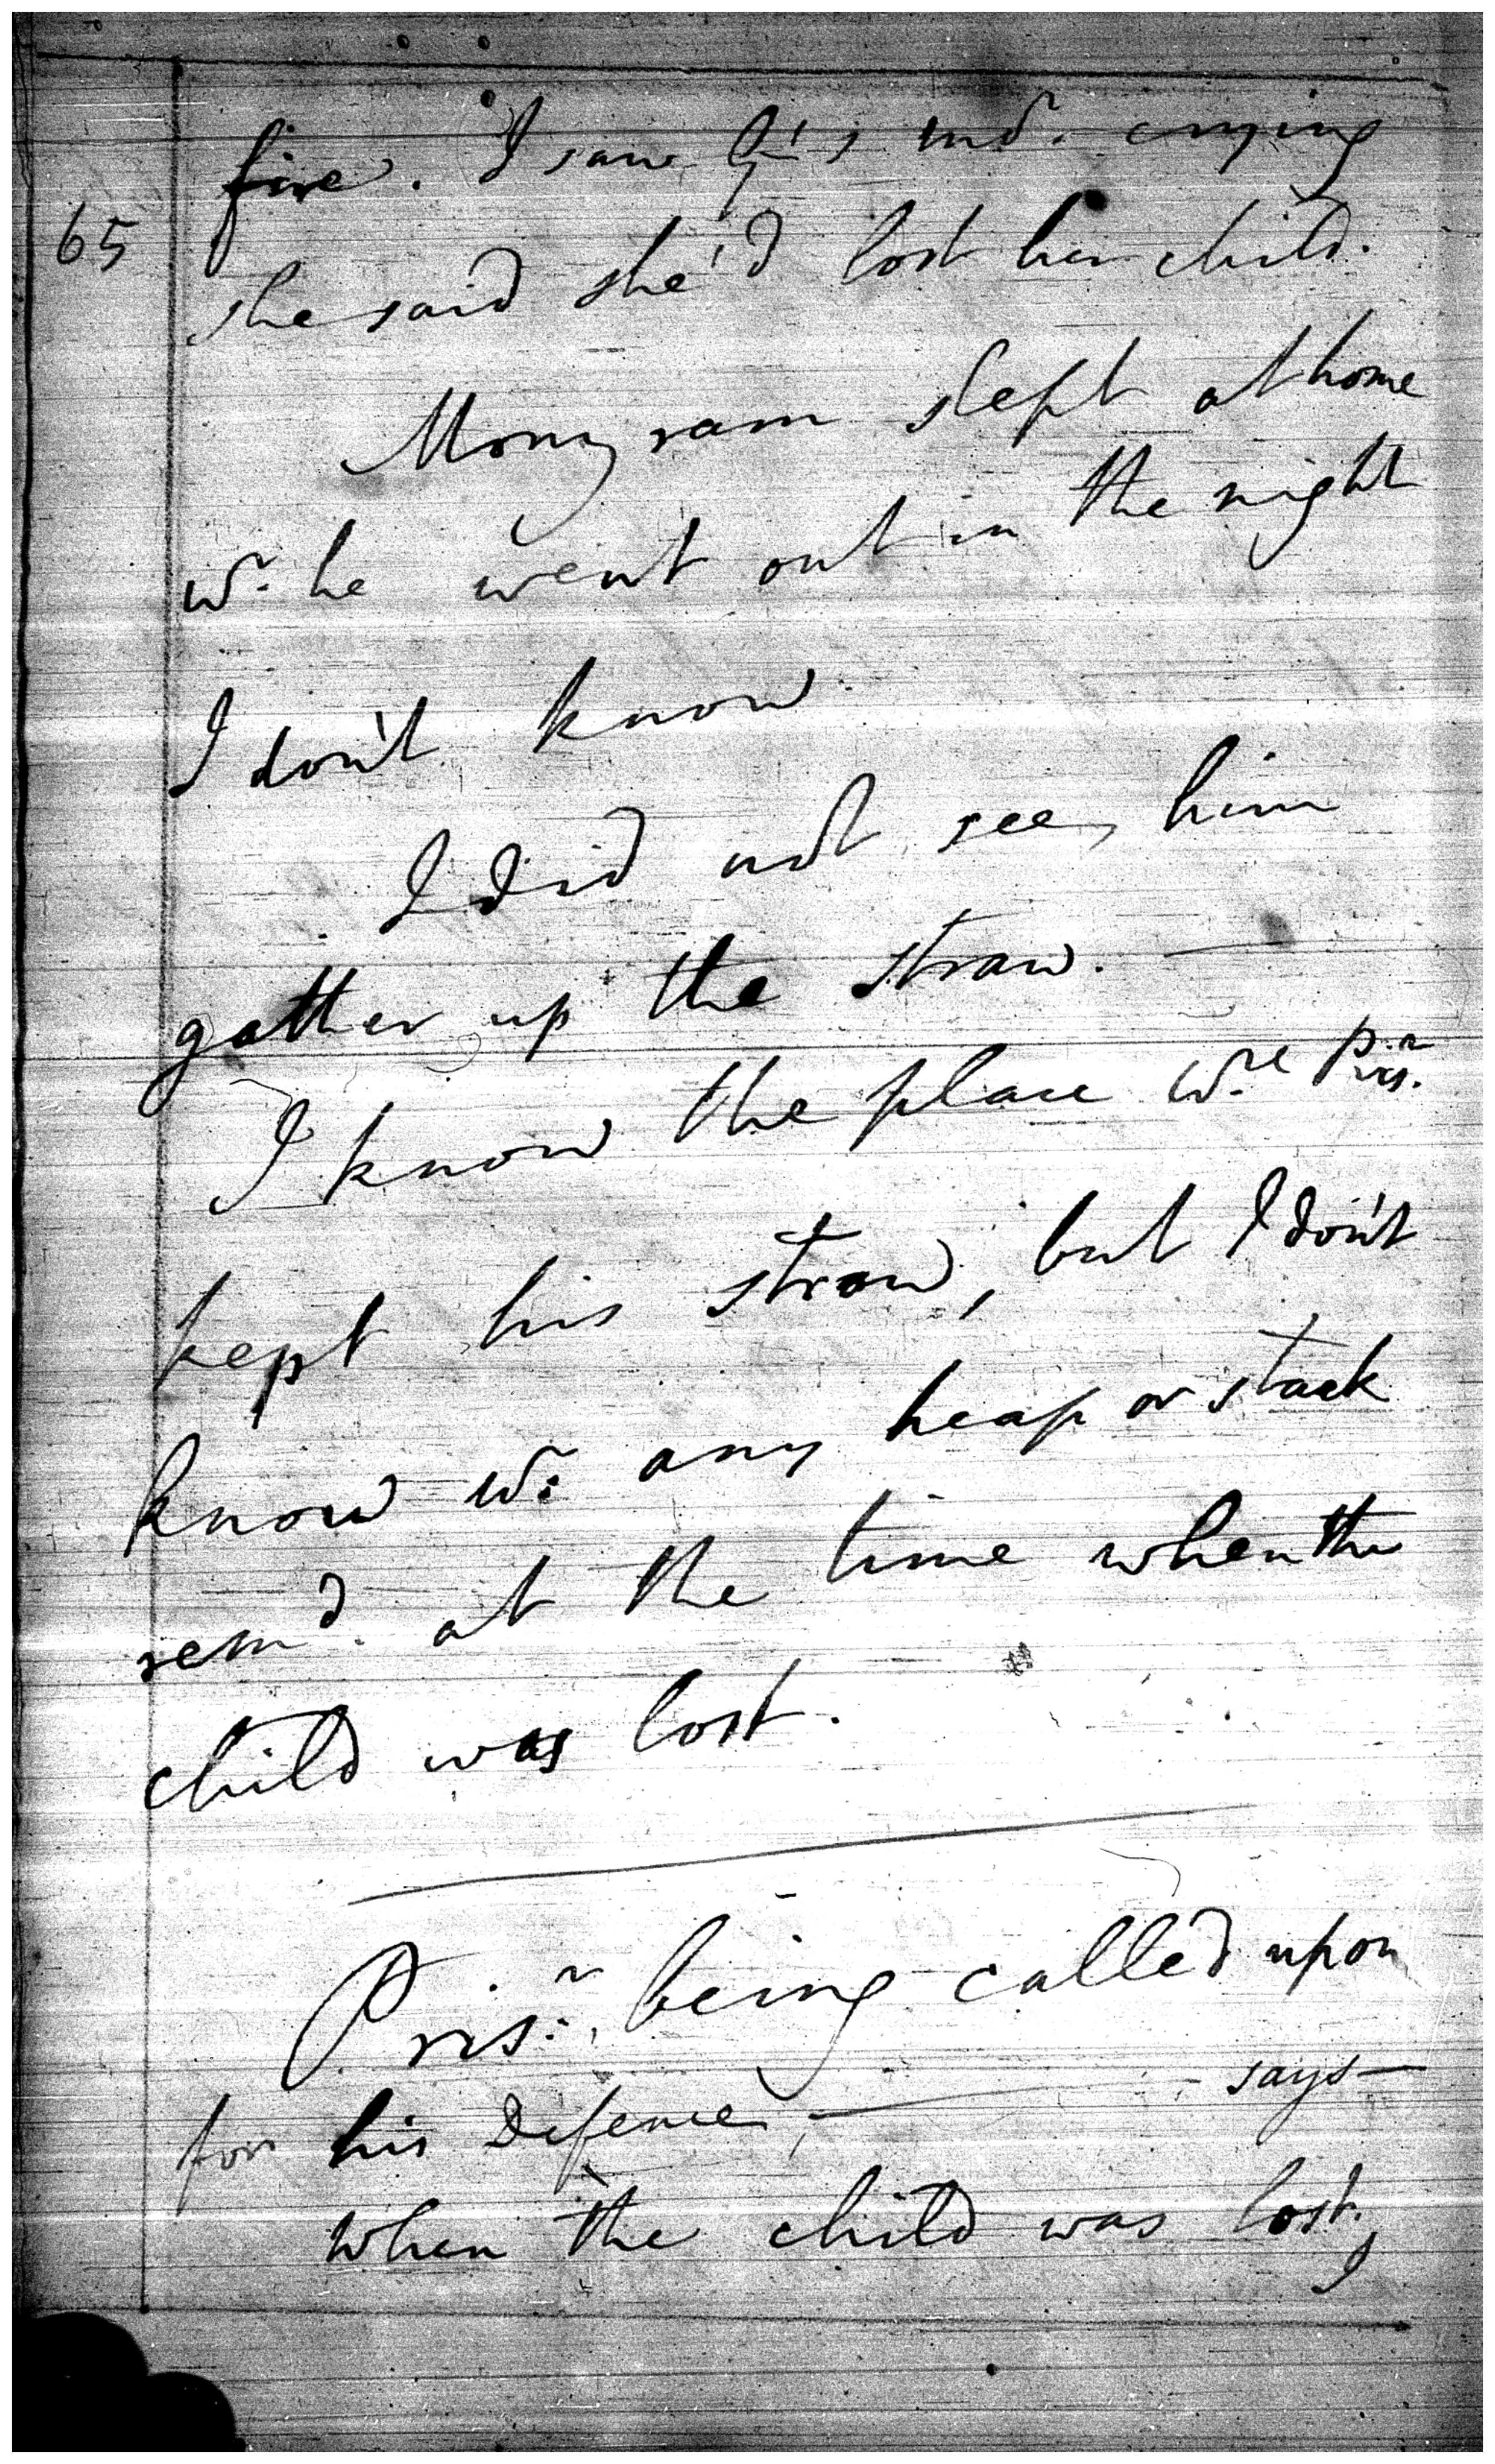 fire. I saw G's mor. crying
65
she said she'd lost her child.
Mony ram slept at home
wr. he went out in the night
I don't know.
I did not see him
gather up the straw. —
I know the place w.re Pris.r
kept his straw, but I don't
know wr. any heap or stack
remd. at the time when the
child was lost.
Pris.r being called upon
for his Defence, — says —
when the child was lost,